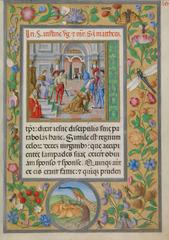 In. S. iustine vg. et mr. S. mattheus.
tpr: dixit iesus discipulis suis pa
rabolam hanc. Simile est regnum
celorum decem virginibus: que accipi
entes lampades suas exierunt obui
am sponso et sponse. Quinque aut
ex eis erant fatue: et quinque pruden